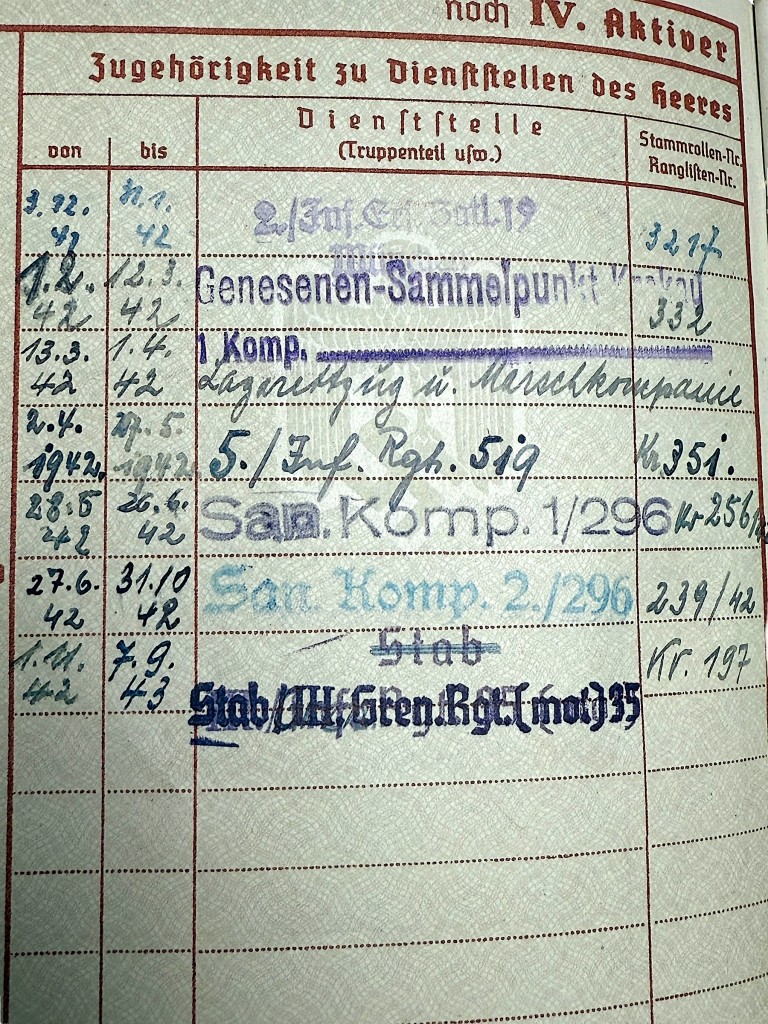 noch IV. Aktiver
Zugehörigkeit zu Dienststellen des Heeres
von
bis
Dienststelle
(Truppenteil usw.)
Stammrollen-Nr.
Ranglisten-Nr.
3.12. 41
31.1. 42
2./Inf. Ers. Batl. 19
3217
1.2. 42
12.3. 42
Genesenen-Sammelpunkt Krakau
332
13.3. 42
1.4. 42
1 Komp.
Lazarettzug u. Marschkompanie
2.4. 1942.
27.5. 1942.
5./Inf. Rgt. 519
Kr 351.
28.5 42
26.6. 42
San. Komp. 1/296
Kr 256
27.6. 42
31.10 42
San. Komp. 2./296
239/42
1.11. 42
7.9. 43
Stab
Stab/III/Gren.Rgt.(mot)35
Kr. 197